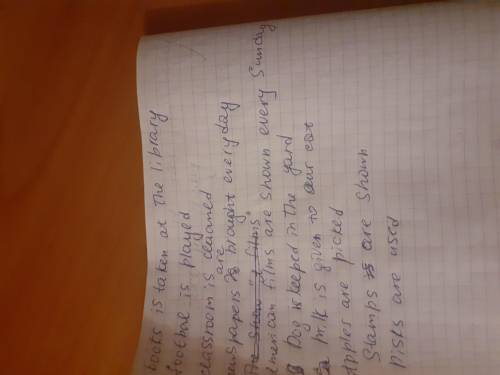 books is taken at the library
football is played
classroom is cleaned
newspapers are brought every day
The show of films
American films are shown every Sunday
Dog is keeped in the yard
milk is given to our cat
Apples are picked
Stamps are shown
Disks are used